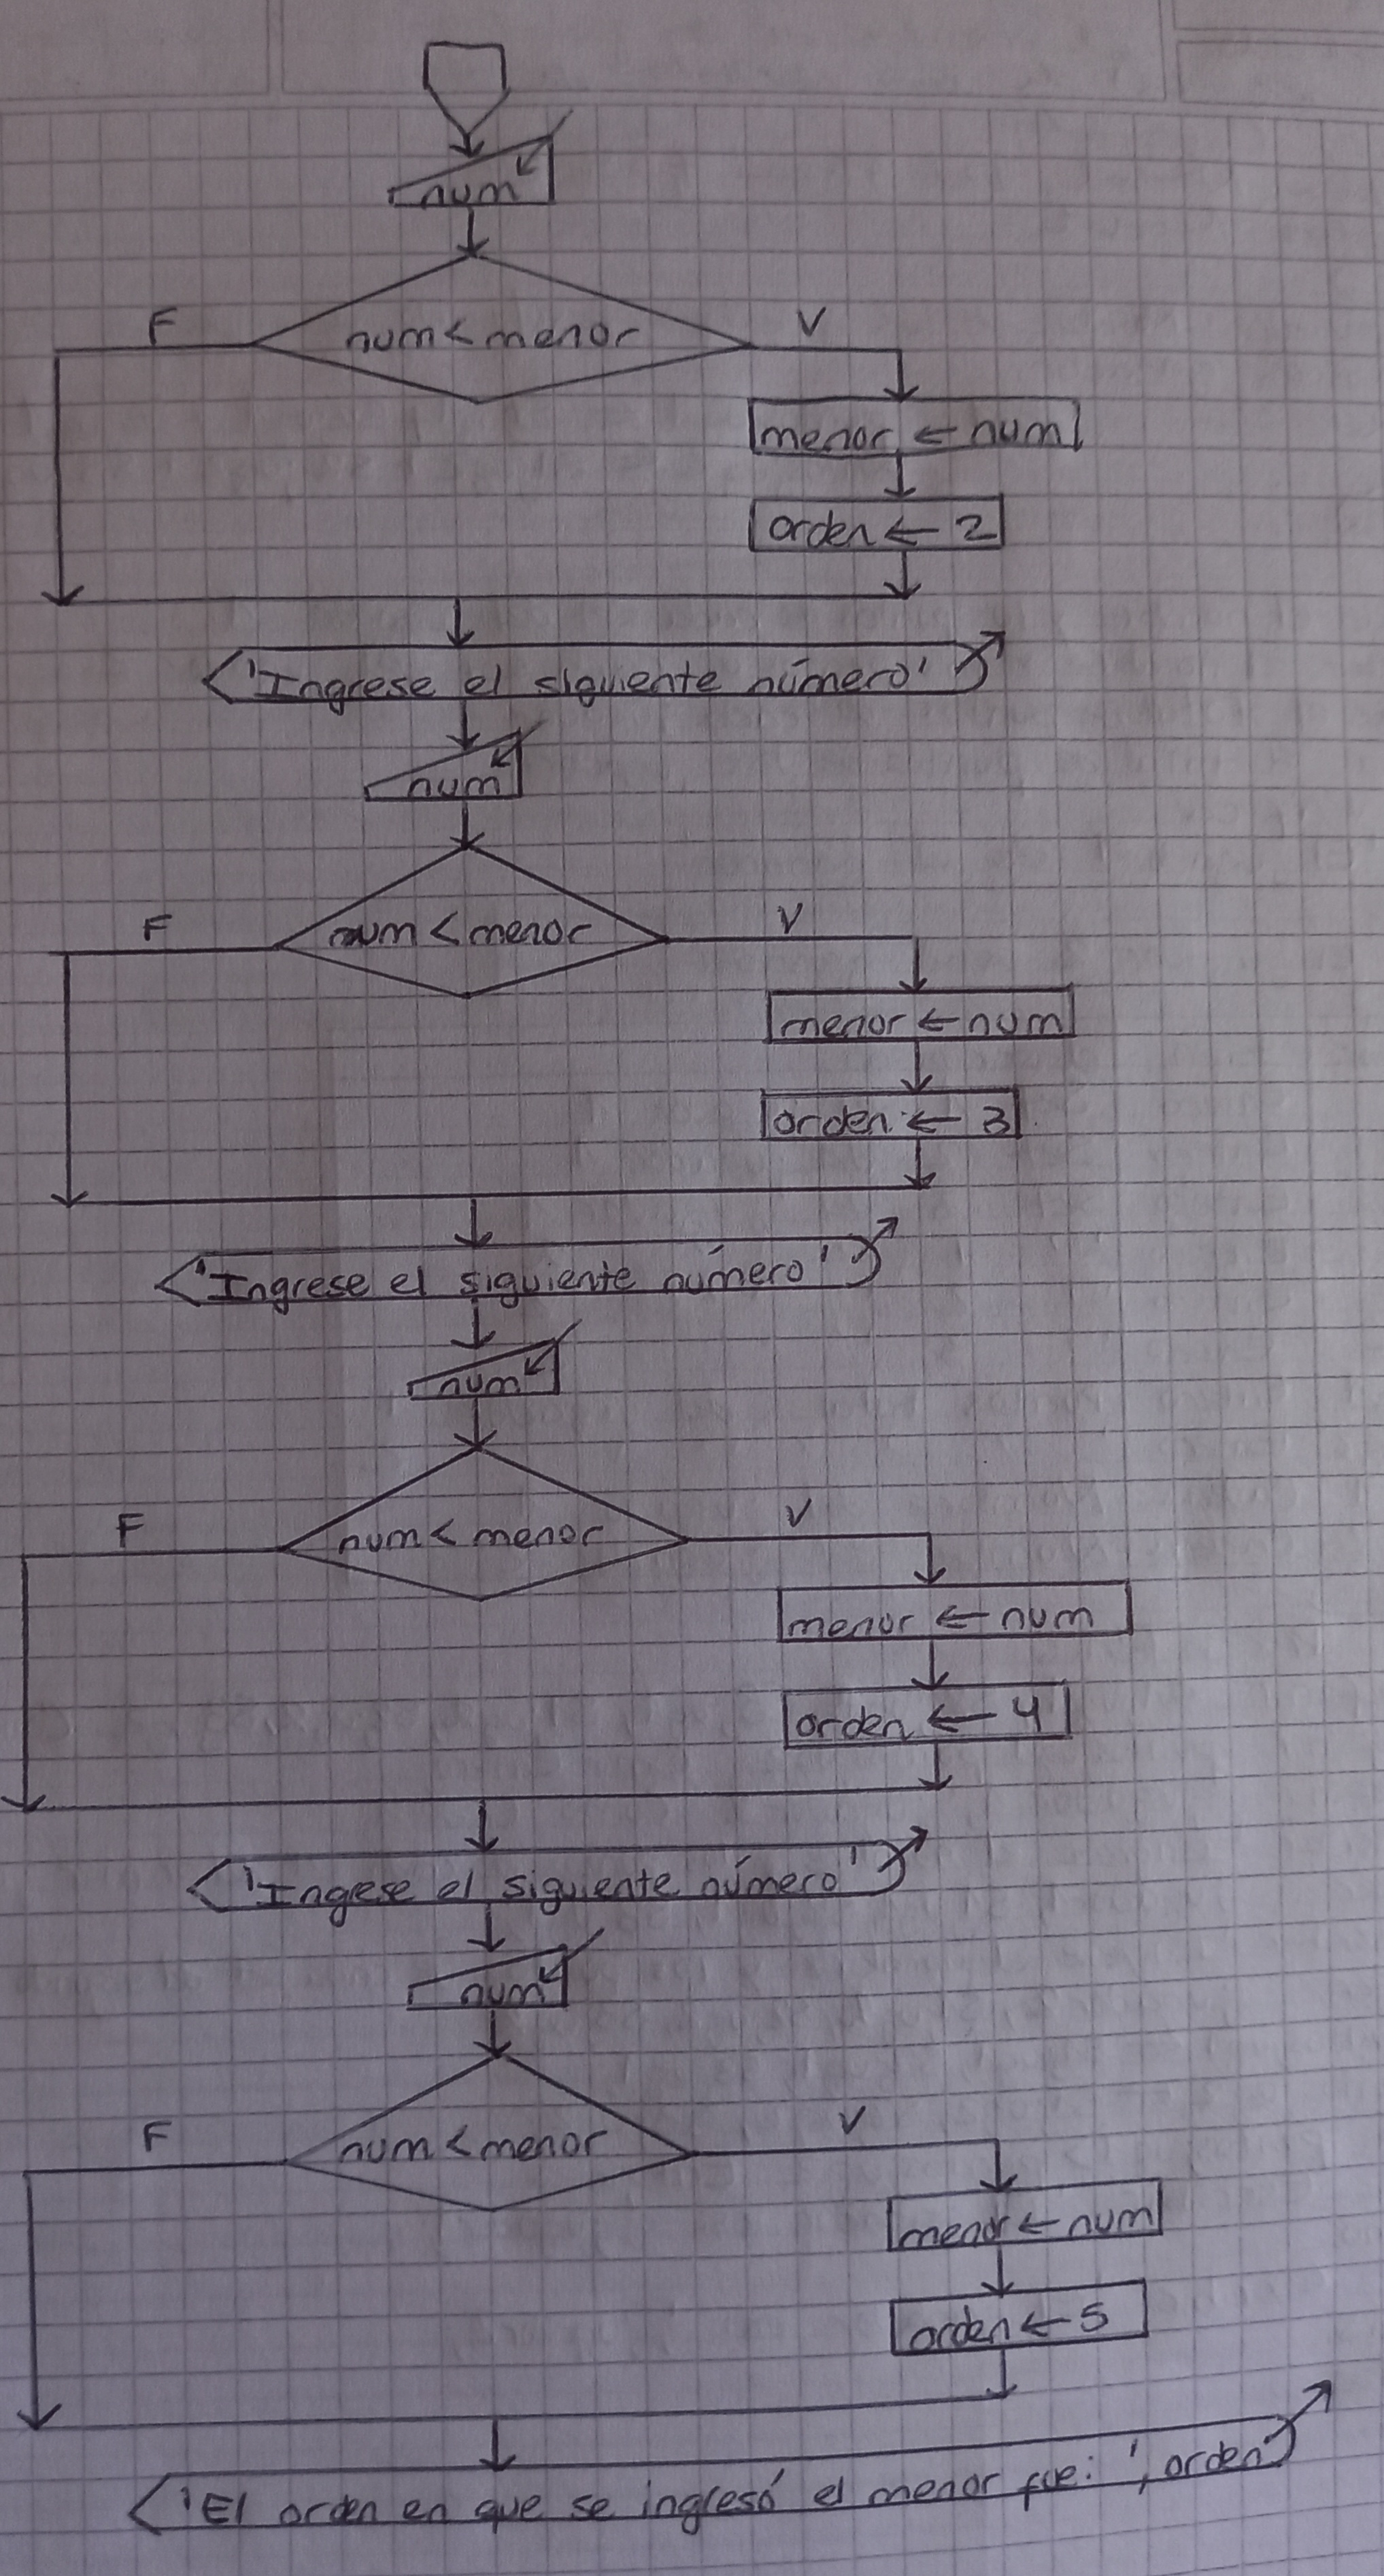 num
num < menor
F
V
menor ← num
orden ← 2
'Ingrese el siguiente número'
num
num < menor
F
V
menor ← num
orden ← 3
'Ingrese el siguiente número'
num
num < menor
F
V
menor ← num
orden ← 4
'Ingrese el siguiente número'
num
num < menor
F
V
menor ← num
orden ← 5
'El orden en que se ingresó el menor fue: ', orden